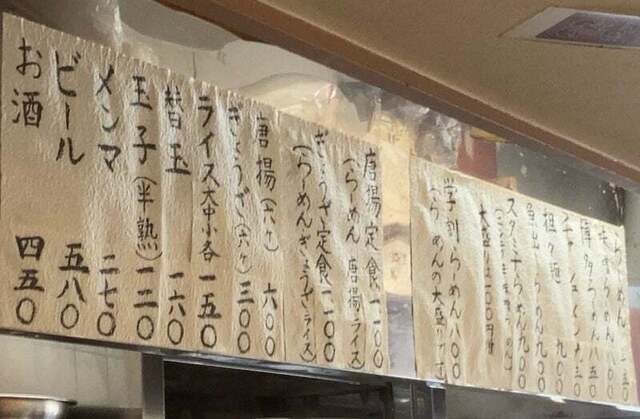 らーめん
らーめん八五〇
チャーシューメン
担々麺 九〇〇
らーめん九〇〇
スタミナらーめん九〇〇
大盛りは一〇〇円増
学割らーめん八〇〇
(らーめんの大盛り
唐揚定食一一〇〇
(らーめん 唐揚 ライス)
ぎょうざ定食一一〇〇
(らーめんぎょうざライス)
唐揚(六ケ)六〇〇
ぎょうざ(六ケ)三〇〇
ライス大中小各一五〇
替玉 一六〇
玉子(半熟)一二〇
メンマ 二七〇
ビール 五八〇
お酒 四五〇